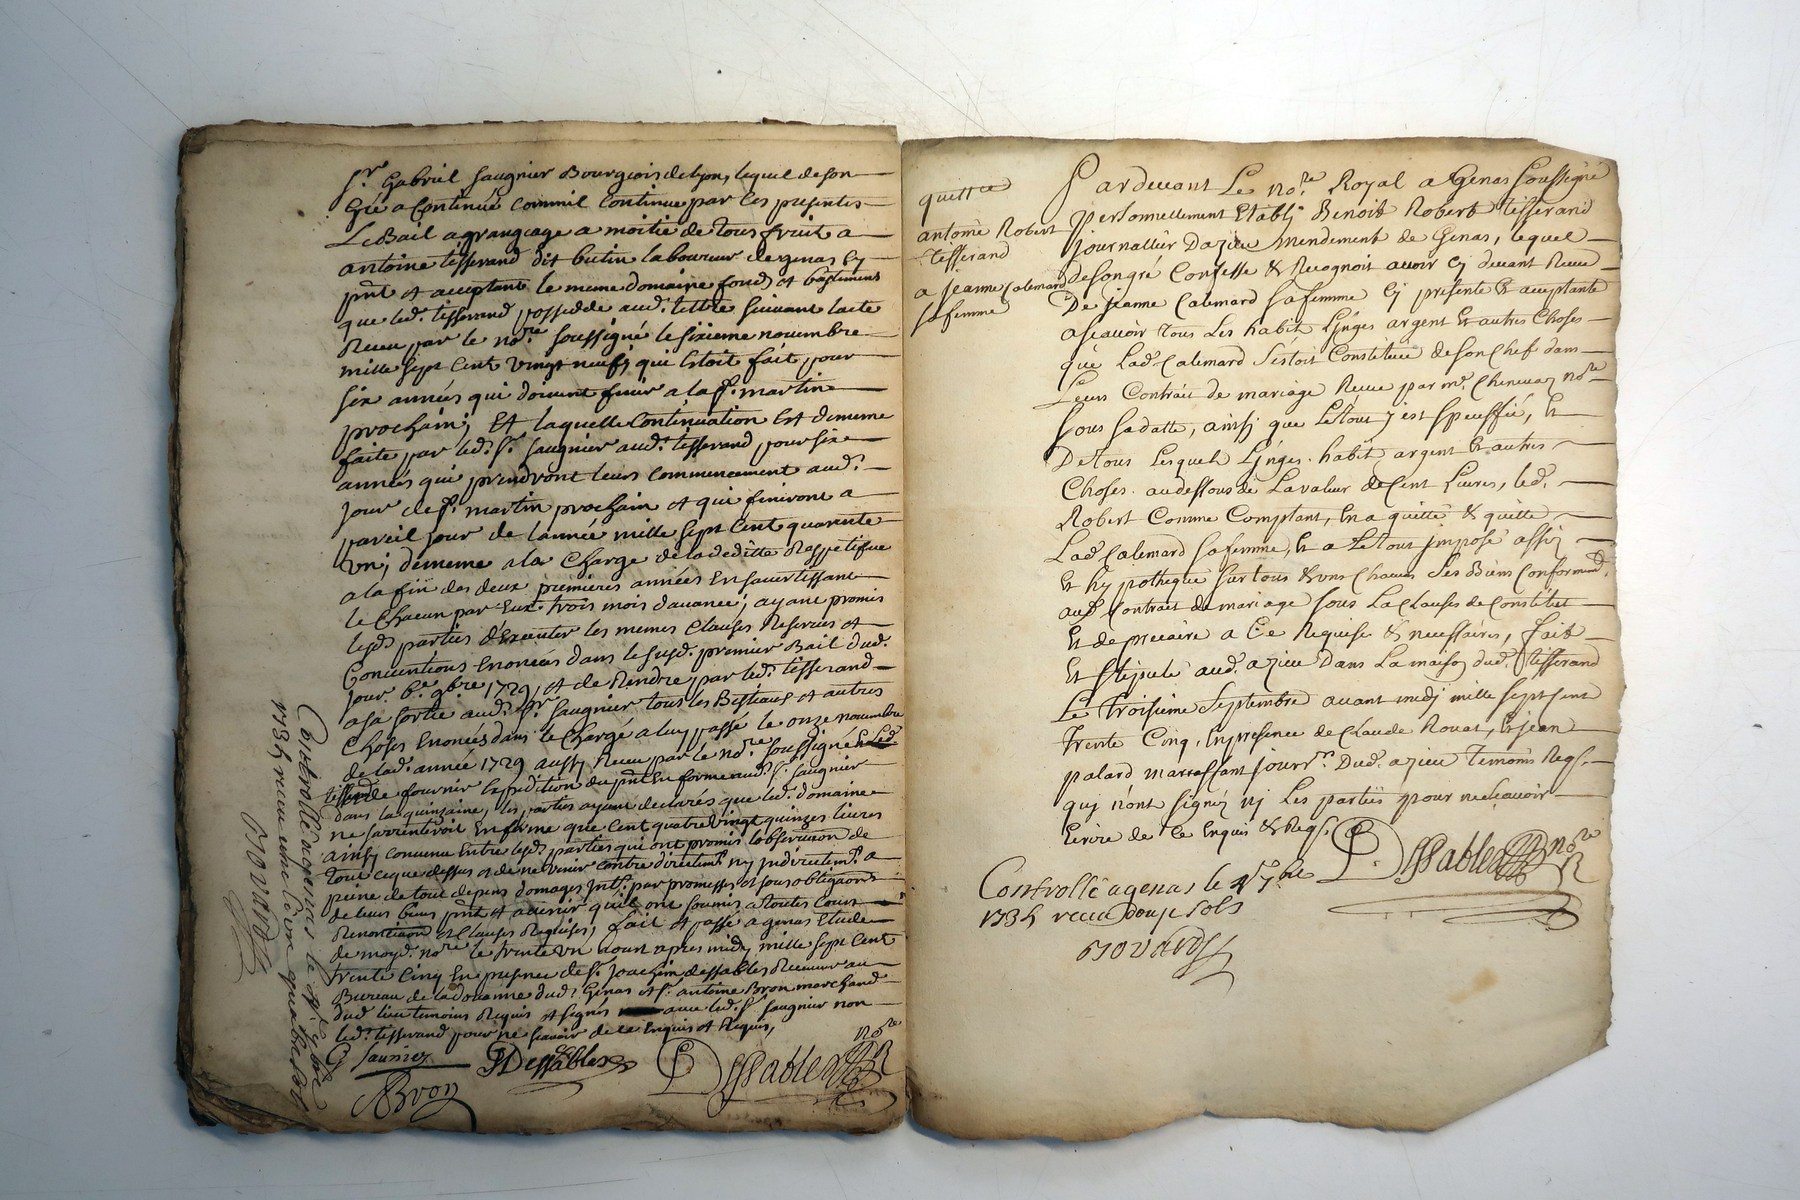 Sr. Gabriel Saugnier Bourgiois de lyon, lequel de son
Gré a Continué comm'il continue par les presentes
Le Bail a grangeage a moitié de tous fruit a
antoine tisserand dit butin laboureur de genas Cy
pnt et acceptant le meme domaine fonds et bastiments
que led. tisserand possedde aud. tittre suivant lacte
Receu par le nore. soussigné le sixieme novembre
mille sept Cent vingt neuf, qui Estoit fait pour
six années qui doivent finir a la st. martin
prochain; Et laquelle Continuation Est de meme
faite par led. sr. saugnier aud. tisserand pour six
années qui prendront leurs commencement aud.
jour de st. martin prochain et qui finiront a
pareil jour de l'année mille sept Cent quarante
un; de meme a la Charge de la deditte Respetifve
a la fin des deux premieres années En s'avertissant
le Chacun par Eux trois mois d'avance; ayant promis
lesd. parties d'Executer les memes Clauses Reserves et
Conventions Enoncées dans le susd. premier Bail dud.
jour 6e. 9bre 1729, et de Rendre par led. tisserand
a sa sortie aud. sr. saugnier tous les Bestiaux et autres
Choses Enoncées dans le Chargé a luy passé le onze novembre
de lad. année 1729 aussy Receu par le nore. soussigné Et Led.
tisserd. de fournir Expedition du pnt En forme aud. sr. saugnier
dans la quinzaine, les parties ayant declarés que led. domaine
ne s'arrenteroit En ferme que cent quatre vingt quinze livres
ainsy convenu Entre lesd. parties qui ont promis l'observation de
tout ce que dessus et de ne venir contre directemt. ny Indirectemt. a
peine de tout depens domages Intts. par promesses et sous obligaons
de leurs biens pnt et advenir qu'il ont soumis a toutes Cours
Renonciaon et Clauses Requises, fait et passé a genas Etude
de moyd. nore le trente un aoust apres midy mille sept Cent
trente Cinq En presnce de sr. Joachim dessables Receveur au
Bureau de la doüanne dud. Genas et sr. antoine Bron marchand
dud. lieu temoins Requis et signés avec led. sr. saugnier non
led. tisserand pour ne scavoir de ce Enquis et Requis,
G Saunier
Dessables
Dessables nore
ABron
Controllé a genas le
1735 receu une livre quatre sols
Bovard
quittce
antoine Robert
tisserand
a jeanne Calemard
sa femme
Pardevant Le nore. Royal a Genas soussigné
personnellement Etably Benoit Robert tisserand
journallier d'azieu mendement de Genas, lequel
de son gré Confesse & Recognoit avoir cy devant Receu
De jeanne Calemard sa femme cy presente Et acceptante
asçavoir tous Les habit Linges argent Et autres Choses
que Lad. Calemard s'estoit Constituée de son Chef dans
Leurs Contrait de mariage Receu par me. nore
sous sa datte, ainsy que Le tout y est speciffié, Et
De tous Lesquels Linges habit argent Et autres
Choses au dessous de La valeur de Cent Livres, led.
Robert Comme Comptant, En a quitté & quitte
Lad. Calemard sa femme, Et a Le tout Imposé assis
Et hypothequé sur tous & uns Chacuns ses Biens Conformemt.
aud. Contrait de mariage sous La Clauses de Constitut
Et de precaire a Ce Requise & necessaires, fait
Et stipulé aud. azieu Dans La maison dud. tisserand
Le troisieme septembre avant midy mille sept sent
trente Cinq, En presence de Claude Rouat, Et jean
palard jourr. dud. azieu temoins Reqs.
quy n'ont signéz ny Les parties pour ne sçavoir
Ecrire de Ce Enquis & Reqs.
Dessables nore
Controllé a genas le 4e 7bre
1735 receu douze sols
Bovard